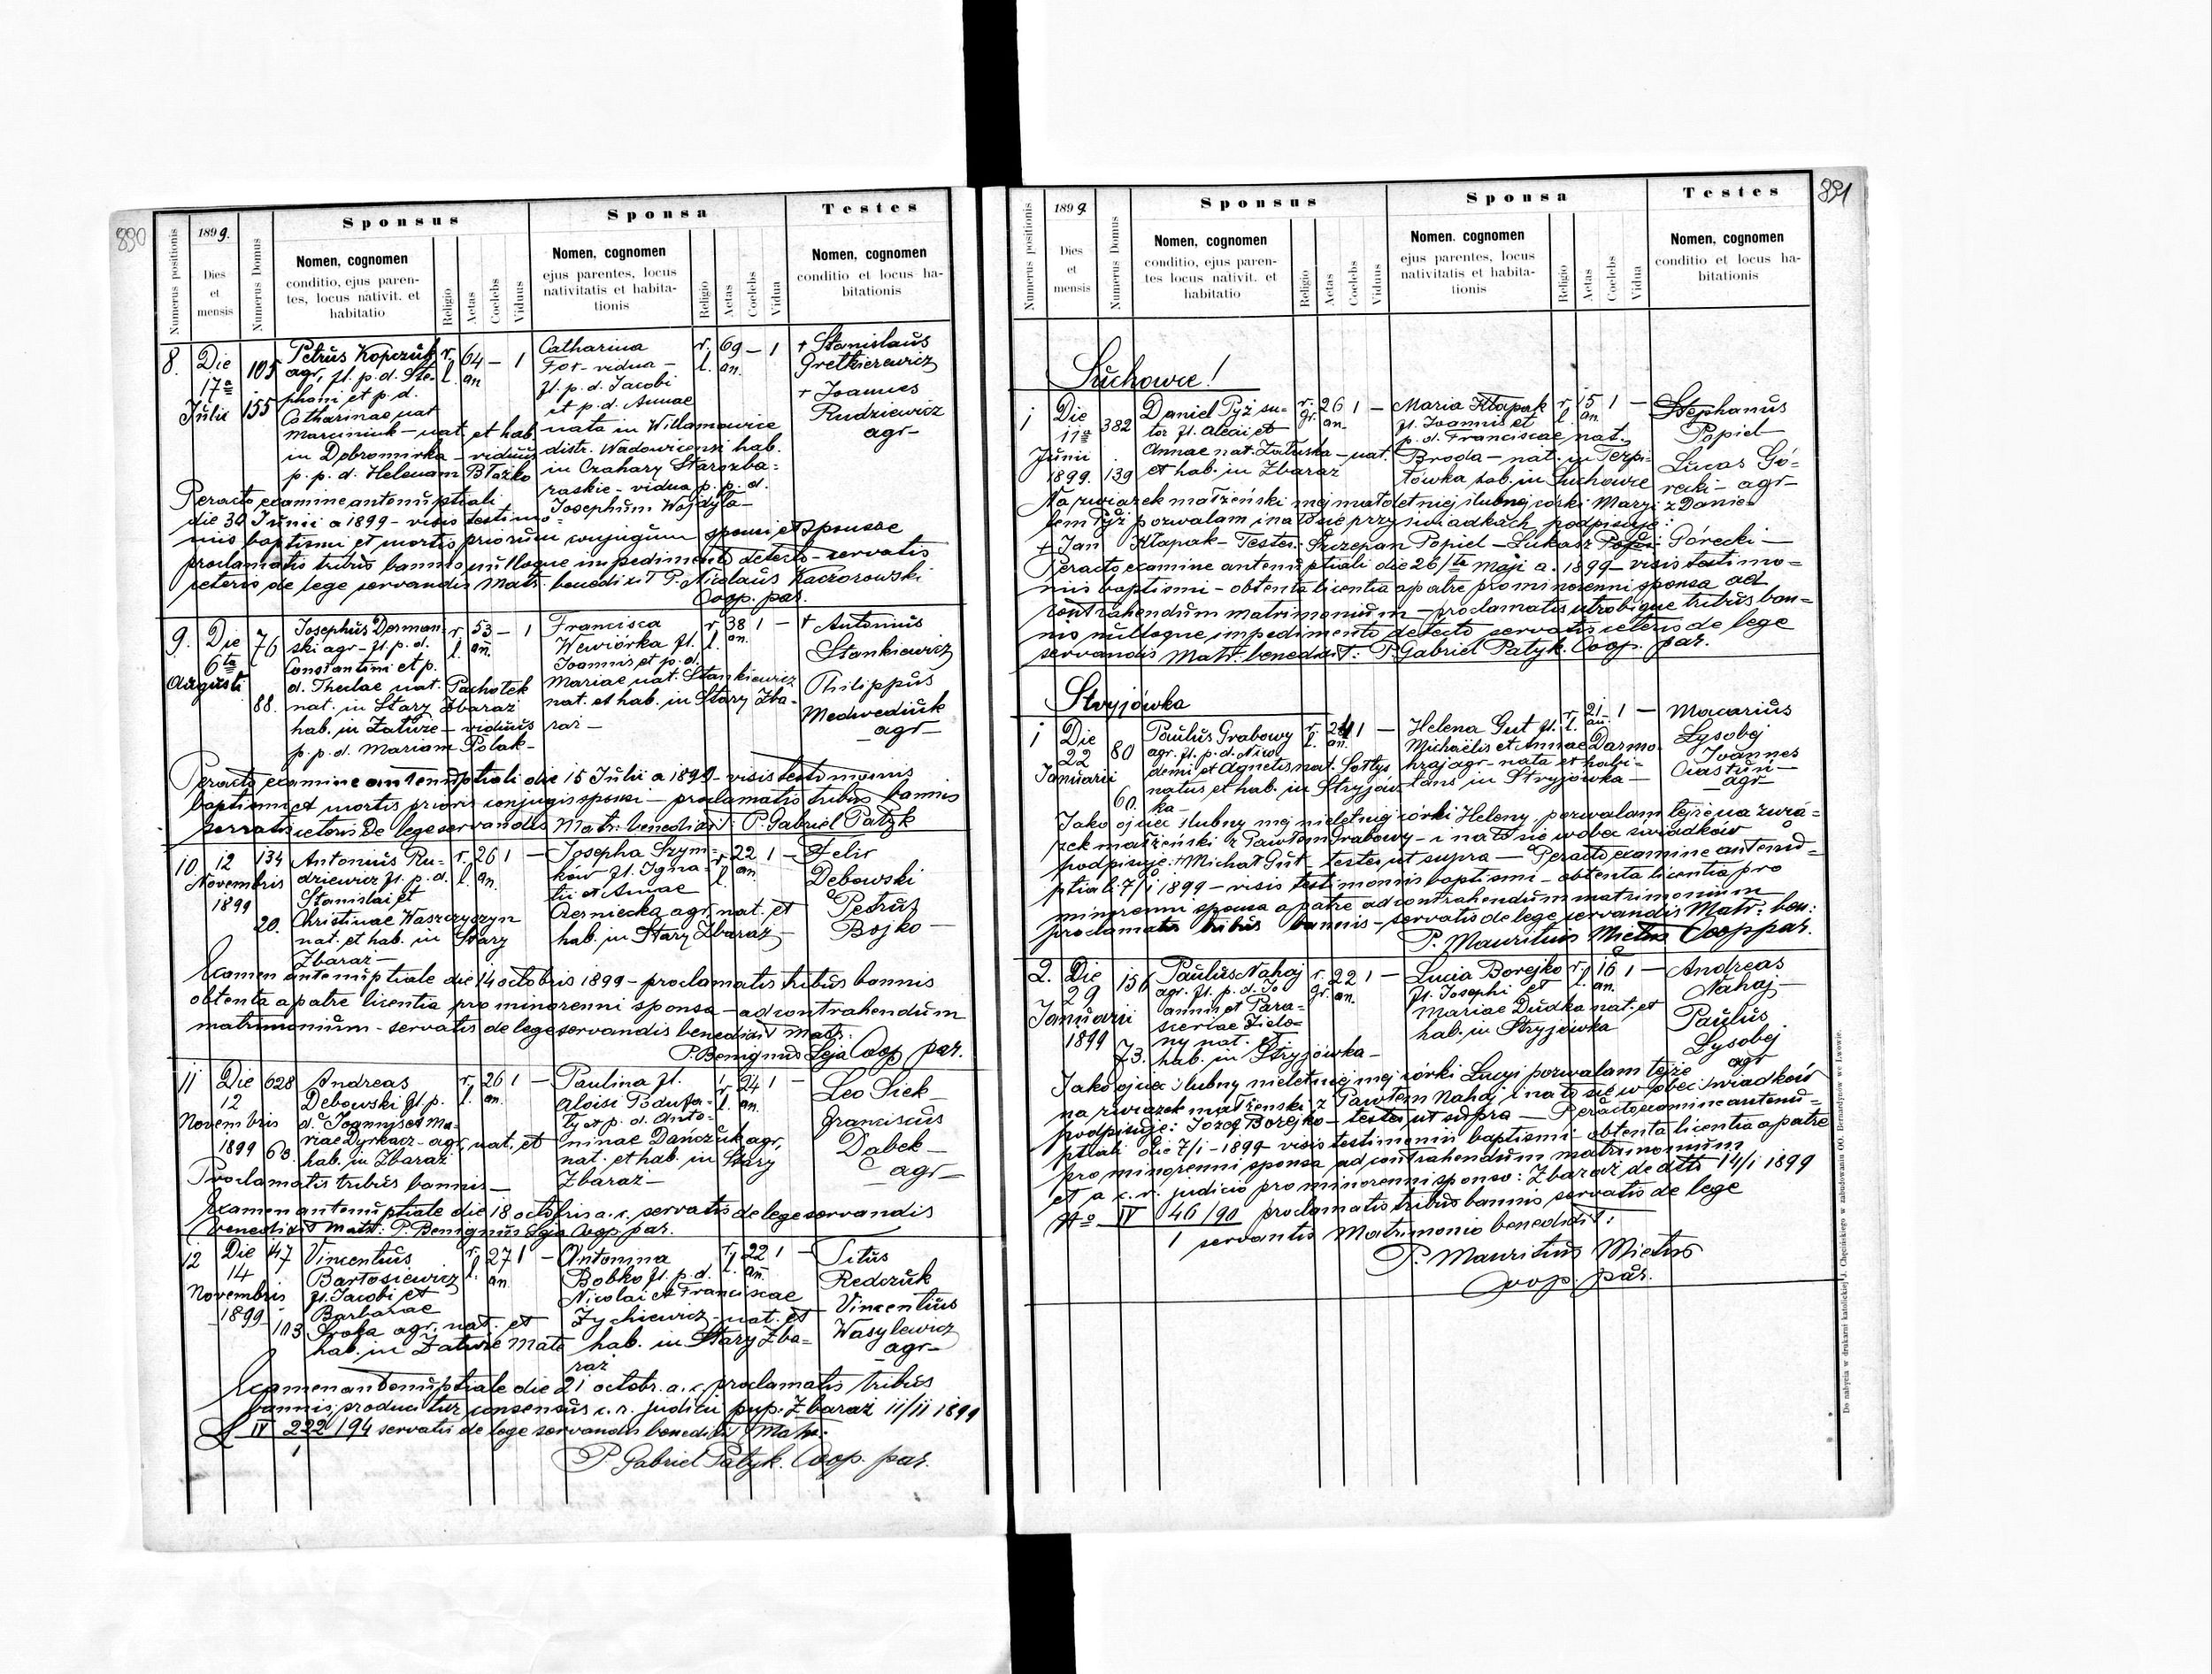 890
Numerus positionis
1899.
Dies
et
mensis
Numerus Domus
Sponsus
Nomen, cognomen
conditio, ejus paren-
tes, locus nativit. et
habitatio
Religio
Aetas
Coelebs
Viduus
Sponsa
Nomen, cognomen
ejus parentes, locus
nativitatis et habita-
tionis
Religio
Aetas
Coelebs
Vidua
Testes
Nomen, cognomen
conditio et locus ha-
bitationis
8. Die 17a Julii
105
155
Petrus Kopczuk
agr, fl. p. d. Ste-
phani et p. d.
Catharinae nat
Marciniuk – nat. et hab.
in Dobromirka – viduus
p. p. d. Helenam Błażko
r. l. 64 an – 1
Catharina
For – vidua –
fl. p. d. Jacobi
et p. d. Annae
nata in Willamowice
distr. Wadowicensi hab.
in Czahary Starozba=
raskie – vidua p. p. d.
Josephum Wojdyła –
r. l. 69 an. – 1
+ Stanislaus
Gretkierewicz
+ Joannes
Rudziewicz
agr –
Peracto examine antenuptiali
die 30 Junii a 1899 – visis testimo=
niis baptismi et mortis priorum conjugum sponsi et sponsae
proclamatis tribus bannis nulloque impedimento detecto – servatis
ceteris de lege servandis Matr. benedixit P. Nicolaus Kaczorowski
Coop. par.
9. Die 6ta Augusti
76
88.
Josephus Derman-
ski agr – fl. p. d.
Constantini et p.
d. Theclae nat. Pachołek
nat. in Stary Zbaraż
hab. in Załuże – viduus
p. p. d. Mariam Polak –
r. l. 53 an. – 1
Francisca
Wewiórka fl.
Joannis et p. d.
Mariae nat. Stankiewicz
nat. et hab. in Stary Zba-
raż –
r. l. 38 an. 1 –
+ Antonius
Stankiewicz
Philippus
Medwediuk
– agr –
Peracto examine antenuptiali die 15 Julii a 1899 – visis testimoniis
baptismi et mortis prioris conjugis sponsi – proclamatis tribus bannis
servatis ceteris de lege servandis Matr. benedixit: P. Gabriel Patyk
10. 12 Novembris 1899
134
20.
Antonius Ru-
dziewicz fl. p. d.
Stanislai et
Christinae Waszczyszyn
nat. et hab. in Stary
Zbaraż –
r. l. 26 an. 1 –
Josepha Szym-
ków fl. Igna-
tii et Annae
Czerniecka agr. nat. et
hab. in Stary Zbaraż –
r. l. 22 an. 1 –
Felix
Dębowski
Petrus
Bojko –
Examen antenuptiale die 14 octobris 1899 – proclamatis tribus bannis
obtenta a patre licentia pro minorenni sponsa – ad contrahendum
matrimonium – servatis de lege servandis benedixit Matr.
P. Benignus Leja Coop par.
11 Die 12 Novembris 1899
628
63.
Andreas
Dębowski fl. p.
d. Joannis et Ma-
riae Dyrkacz – agr. nat. et
hab. in Zbaraż
r. l. 26 an. 1 –
Paulina fl.
Aloisi Podufa-
ły et p. d. Anto-
ninae Dańczuk agr,
nat. et hab. in Stary
Zbaraż –
r. l. 24 an. 1 –
Leo Siek –
Franciscus
Dąbek –
– agr –
Proclamatis tribus bannis –
Examen antenuptiale die 18 octobris a. c. servatis de lege servandis
benedixit Matr: P. Benignus Leja Coop par.
12 Die 14 Novembris 1899
47
113
Vincentius
Bartosiewicz
fl. Jacobi et
Barbarae
Sroka agr. nat. et
hab. in Załuże Małe
r. l. 27 an. 1 –
Antonina
Bobko fl. p. d.
Nicolai et Franciscae
Zychiewicz – nat. et
hab. in Stary Zba=
raż
r. l. 22 an. 1 –
Titus
Redczuk
Vincentius
Wasylewicz
– agr –
Examen antenuptiale die 21 octobr. a. c. proclamatis tribus
bannis, producitur consensus c. r. judicii pup. Zbaraż 11/11 1899
L IV 222/1 /94 servatis de lege servandis benedixit Matr.
P. Gabriel Patyk. Coop. par.
891
Numerus positionis
1899.
Dies
et
mensis
Numerus Domus
Sponsus
Nomen, cognomen
conditio, ejus paren-
tes locus nativit. et
habitatio
Religio
Aetas
Coelebs
Viduus
Sponsa
Nomen. cognomen
ejus parentes, locus
nativitatis et habita-
tionis
Religio
Aetas
Coelebs
Vidua
Testes
Nomen, cognomen
conditio et locus ha-
bitationis
Suchowce!
1 Die 11a Junii 1899.
382
139
Daniel Pyż su-
tor fl. Alexii et
Annae nat. Załuska – nat.
et hab. in Zbaraż
r. gr. 26 an. 1 –
Maria Kłapak
fl. Joannis et
p. d. Franciscae nat.
Broda – nat. in Terpi-
łówka hab. in Suchowce
r. l. 15 an. 1 –
Stephanus
Popiel
Lucas Gó=
recki – agr –
Na związek małżeński mej małoletniej ślubnej córki Maryi z Danie-
lem Pyż pozwalam i na to się przy świadkach podpisuję:
+ Jan Kłapak – Testes: Szczepan Popiel – Łukasz Górecki –
Peracto examine antenuptiali die 26/te Maji a. 1899 – visis testimo=
niis baptismi – obtenta licentia a patre pro minorenni sponsa ad
contrahendum matrimonium – proclamatis utrobique tribus ban=
nis nulloque impedimento detecto servatis ceteris de lege
servandis Matr. benedixit: P. Gabriel Patyk. Coop. par.
Stryjówka
1 Die 22 Januarii
80
60.
Paulus Grabowy
agr. fl. p. d. Nico
demi et Agnetis nat. Sołtys
natus et hab. in Stryjów-
ka –
r. l. 24 an. 1 –
Helena Gut fl.
Michaëlis et Annae Darmo-
hraj agr – nata et habi-
tans in Stryjówka –
r. l. 21 an. 1 –
Macarius
Łysobej
Joannes
Ciastuń –
– agr –
Jako ojciec ślubny mej nieletniej córki Heleny, pozwalam tejże na zwią=
zek małżeński z Pawłem Grabowy – i na to się wobec świadków
podpisuję: + Michał Gut – testes ut supra – Peracto examine antenu=
ptiali 7/1 1899 – visis testimoniis baptismi – obtenta licentia pro
minorenni sponsa a patre ad contrahendum matrimonium
proclamatis tribus bannis – servatis de lege servandis Matr: ben:
P. Mauritius Miętus Coop par.
2. Die 29 Januarii 1899
156
73.
Paulus Nahaj
agr. fl. p. d. Jo
annis et Para=
sceviae Zielo=
ny nat. et
hab. in Stryjówka –
r. gr. 22 an. 1 –
Lucia Borejko
fl. Josephi et
Mariae Dudka nat. et
hab. in Stryjówka
r. l. 16 an. 1 –
Andreas
Nahaj –
Paulus
Łysobej
agr
Jako ojciec ślubny nieletniej mej córki Łucyi pozwalam tejże
na związek małżeński z Pawłem Nahaj i na to się w obec świadków
podpisuję: Józef Borejko – testes ut supra – Peracto examine antenu=
ptiali die 7/1 – 1899 – visis testimoniis baptismi – obtenta licentia a patre
pro minorenni sponsa ad contrahendum matrimonium
et a c. r. judicio pro minorenni sponso: Zbaraż de dtto 14/1 1899
No IV 46/1 /90 proclamatis tribus bannis servatis de lege
servantis Matrimonio benedixit:
P. Mauritius Miętus
Coop. par.
Do nabycia w drukarni katolickiej J. Chęcińskiego w zabudowaniu OO. Bernardynów we Lwowie.